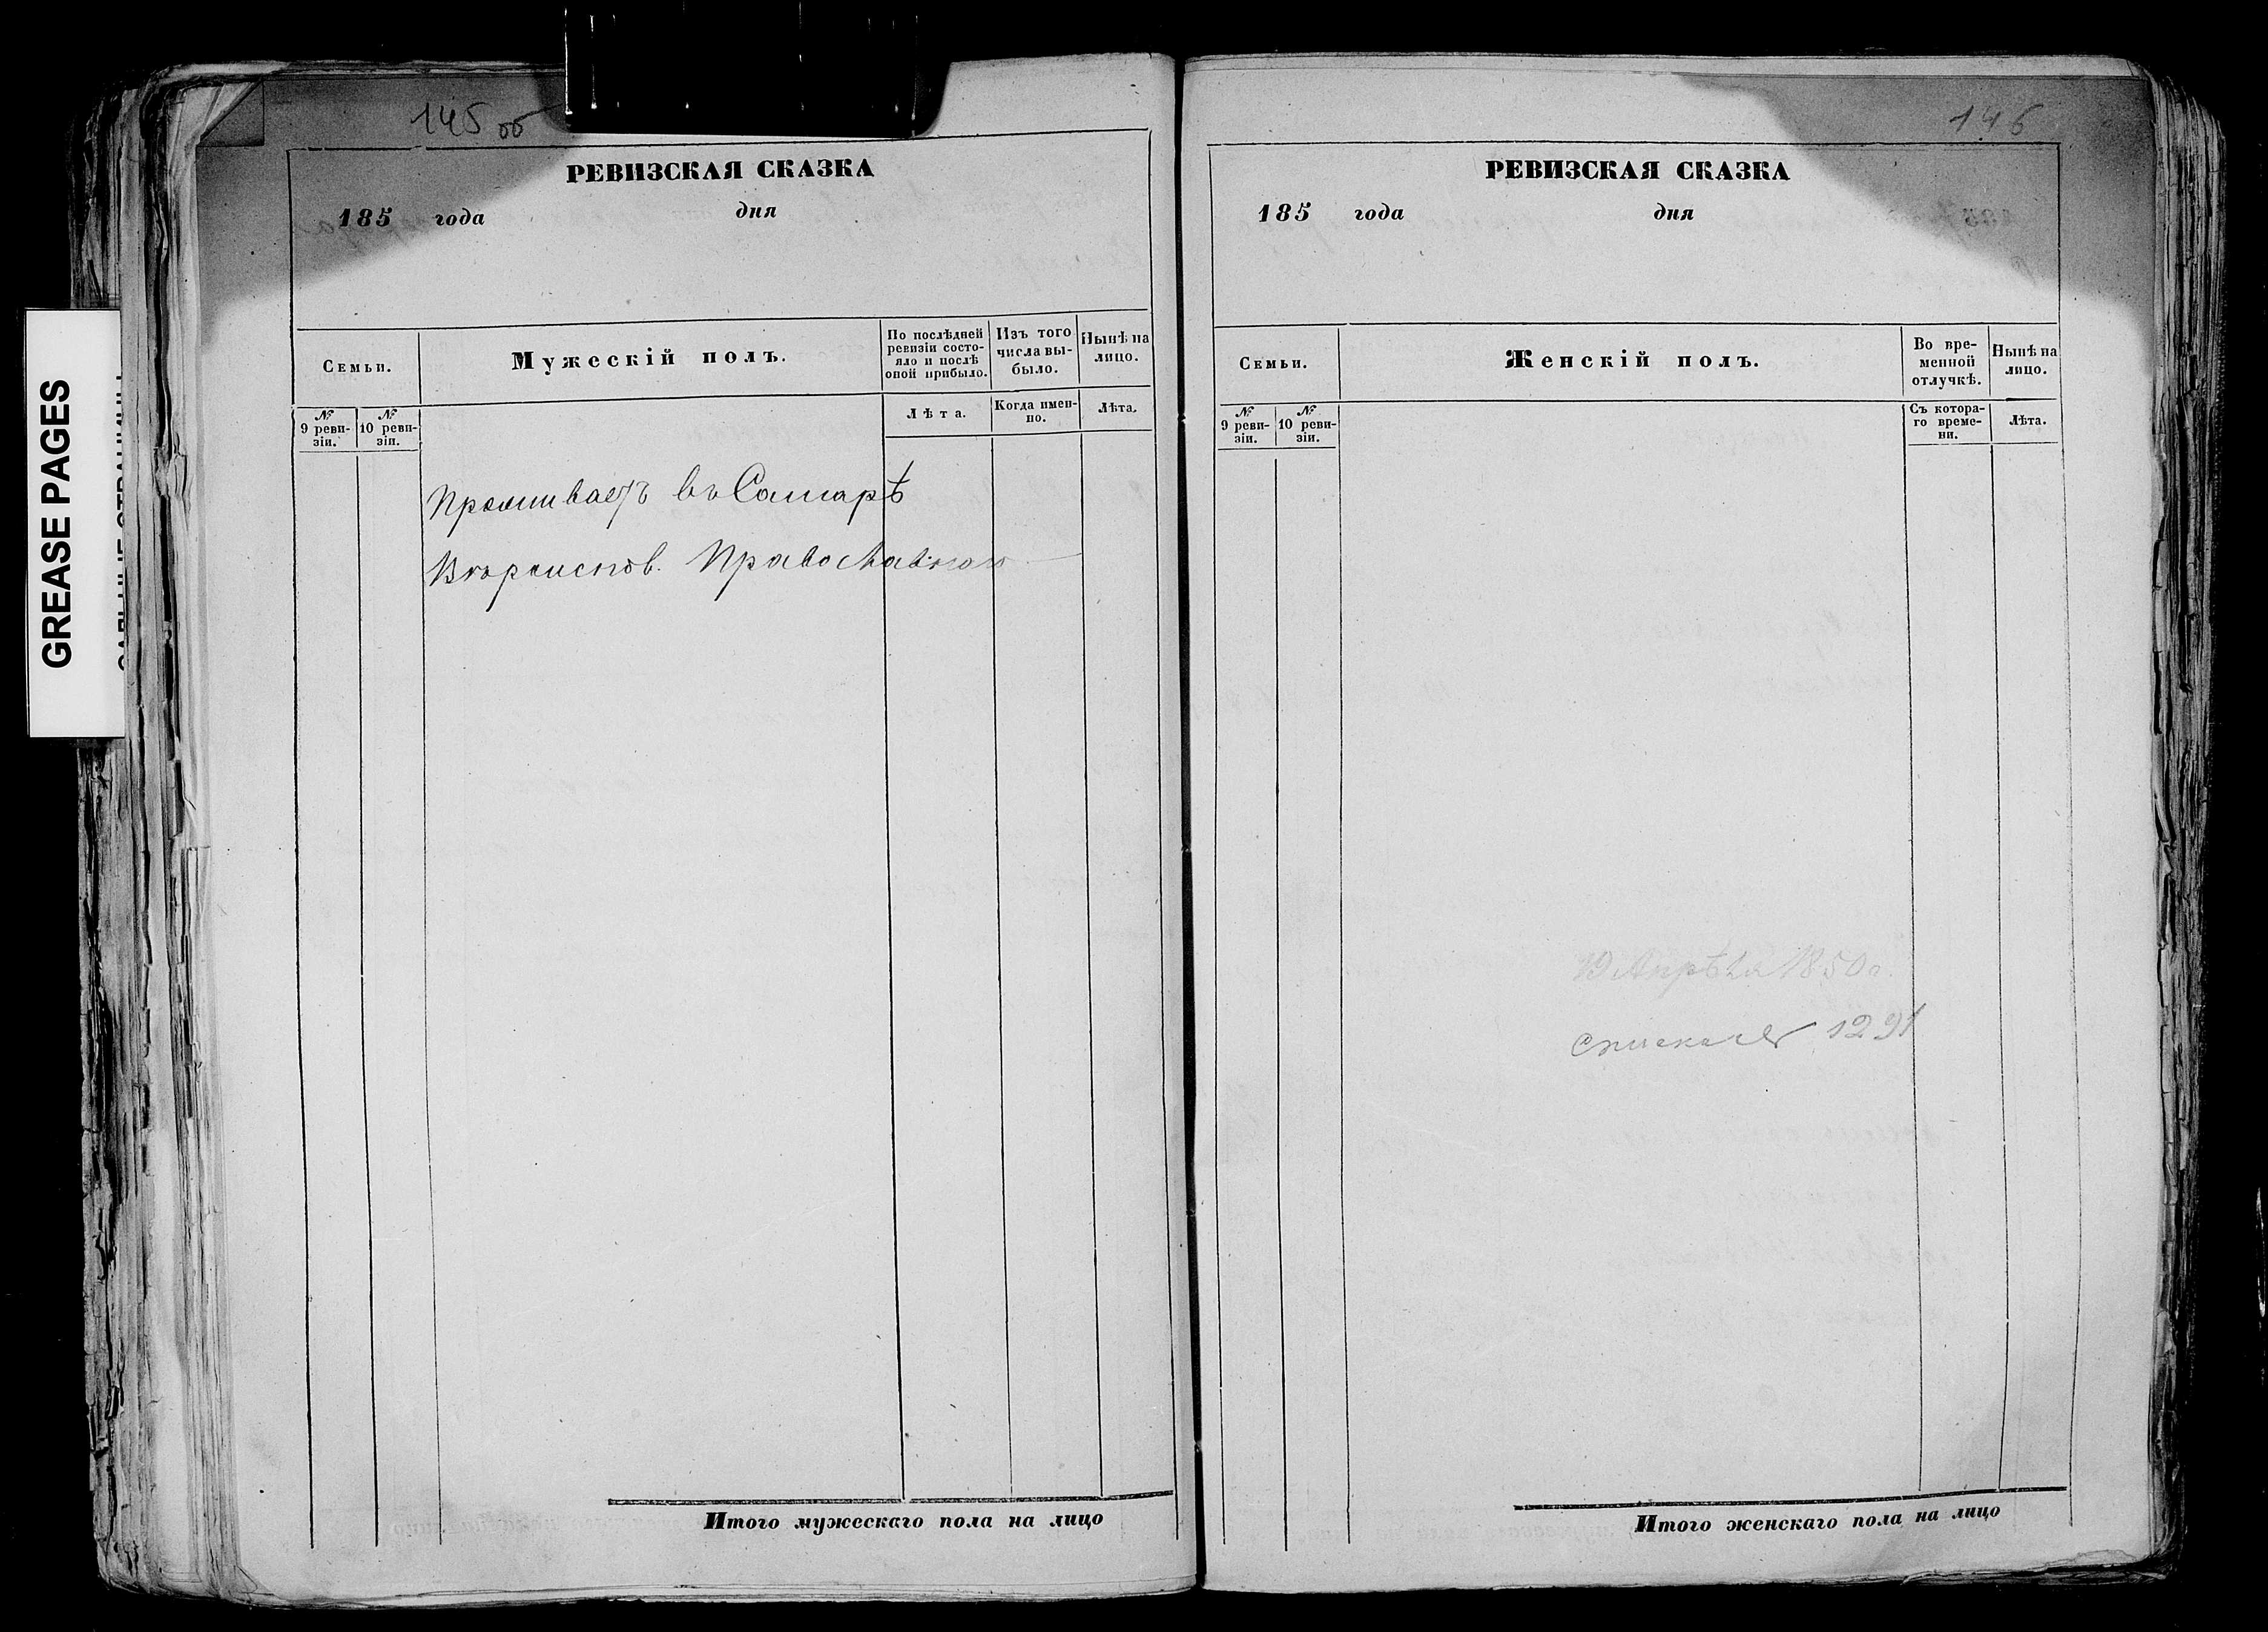 145 об
РЕВИЗСКАЯ СКАЗКА
185 года дня
Семьи.
Мужескій полъ.
По послѣдней ревизіи состо-
яло и послѣ
оной прибыло.
Изъ того
числа вы-
было.
Нынѣ на
лицо.
№
9 реви-
зіи.
№
10 реви-
зіи.
Лѣта.
Когда имен-
но.
Лѣта.
Проживаетъ въ Самарѣ
Вѣроисповѣд. Православнаго
Итого мужескаго пола на лицо
146
РЕВИЗСКАЯ СКАЗКА
185 года дня
Семьи.
Женскій полъ.
Во вре-
менной
отлучкѣ.
Нынѣ на
лицо.
№
9 реви-
зіи.
№
10 реви-
зіи.
Съ котора-
го време-
ни.
Лѣта.
19 Апрѣля 1850 г.
1291
Итого женскаго пола на лицо
GREASE PAGES